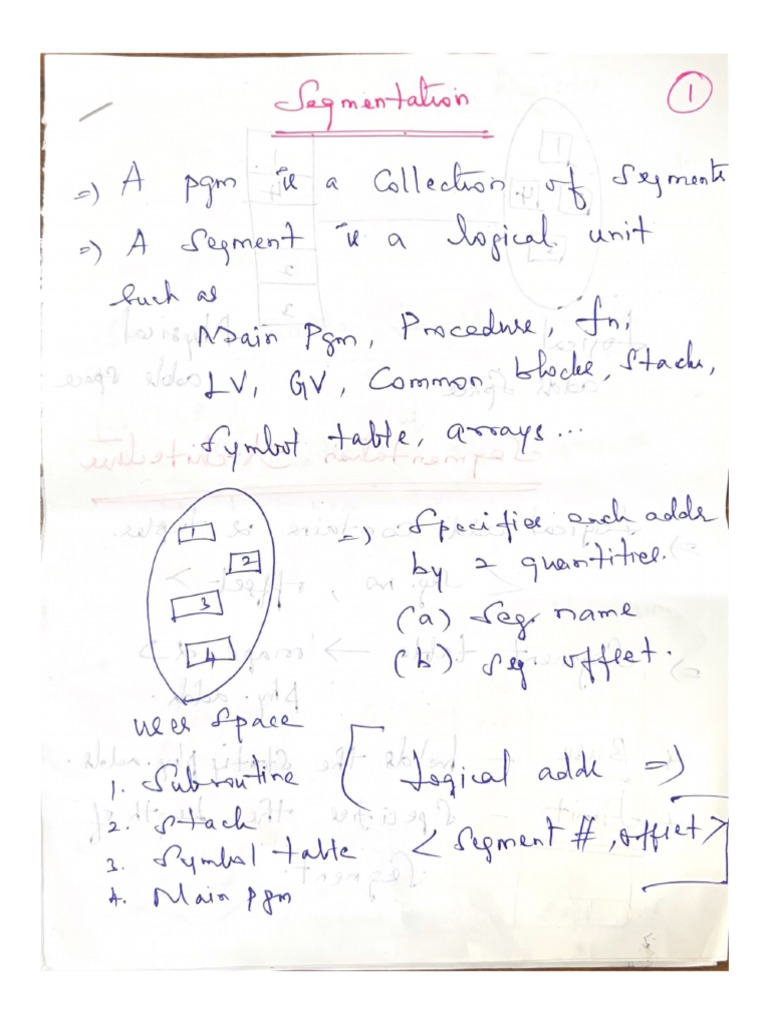 Segmentation
1
=) A pgm is a Collection of Segments
=) A Segment is a logical unit
Such as
Main Pgm, Procedure, fn,
LV, GV, Common blocks, Stack,
Symbol table, arrays...
1
2
3
4
user Space
1. Subroutine
2. Stack
3. Symbol table
4. Main pgm
=) Specifies each addr
by 2 quantities.
(a) Seg. name
(b) Seg. offset.
Logical addr =)
< Segment #, offset >